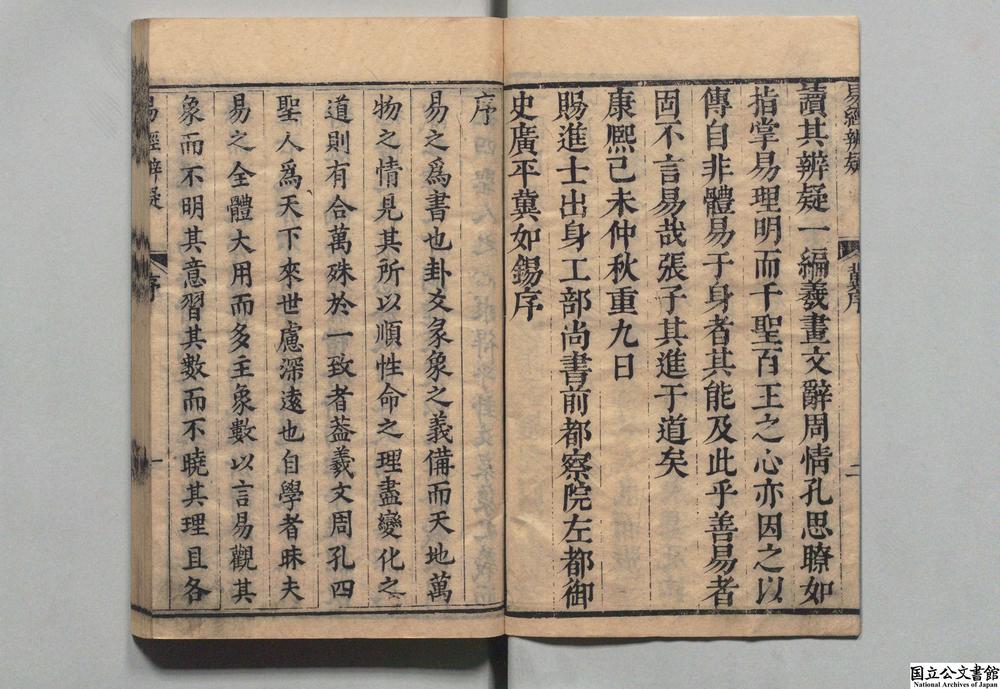 易經辨疑 冀序 二
讀其辨疑一編羲畫文辭周情孔思瞭如
指掌易理明而千聖百王之心亦因之以
傳自非體易于身者其能及此乎善易者
固不言易哉張子其進于道矣
康熙己未仲秋重九日
賜進士出身工部尚書前都察院左都御
史廣平冀如錫序
序
易之爲書也卦爻彖象之義備而天地萬
物之情見其所以順性命之理盡變化之
道則有合萬殊於一致者葢羲文周孔四
聖人爲天下來世慮深遠也自學者昧夫
易之全體大用而多主象數以言易觀其
象而不明其意習其數而不曉其理且各
易經辨疑 序 一
国立公文書館
National Archives of Japan